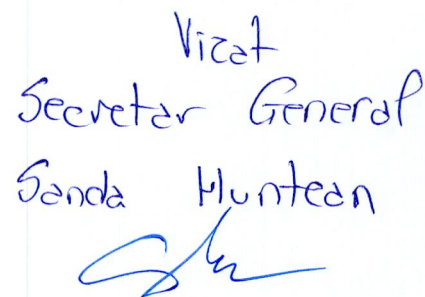 Vizat
Secretar General
Sanda Muntean